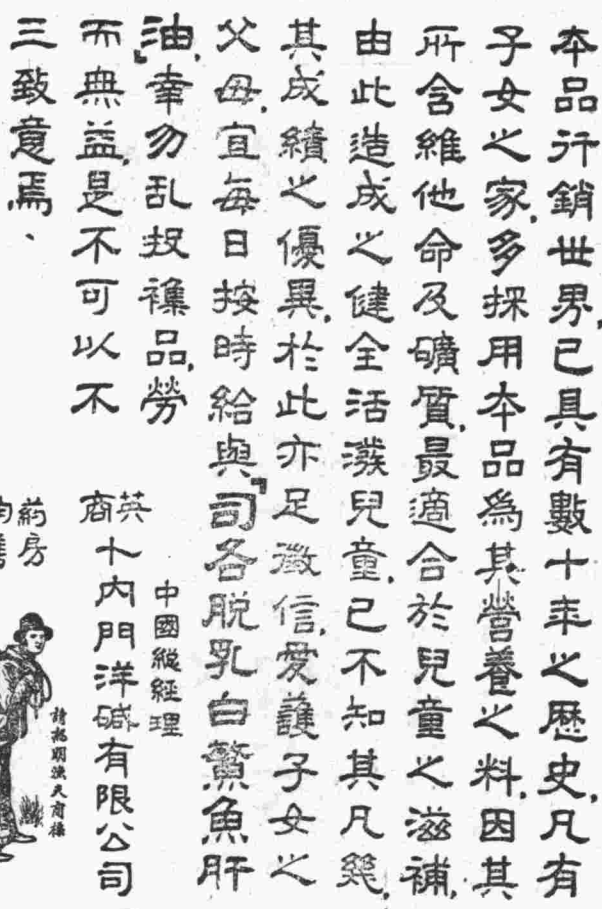 本品行銷世界,已具有數十年之歷史,凡有
子女之家,多採用本品為其營養之料,因其
所含維他命及礦質,最適合於兒童之滋補,
由此造成之健全活潑兒童,已不知其凡幾,
其成績之優異,於此亦足徵信,愛護子女之
父母,宜每日按時給與『司各脫乳白鰵魚肝
油』,幸勿乱投襍品,勞
而無益,是不可以不
三致意焉、
中國總經理
英商卜內門洋碱有限公司
請認明漁夫商標
葯房